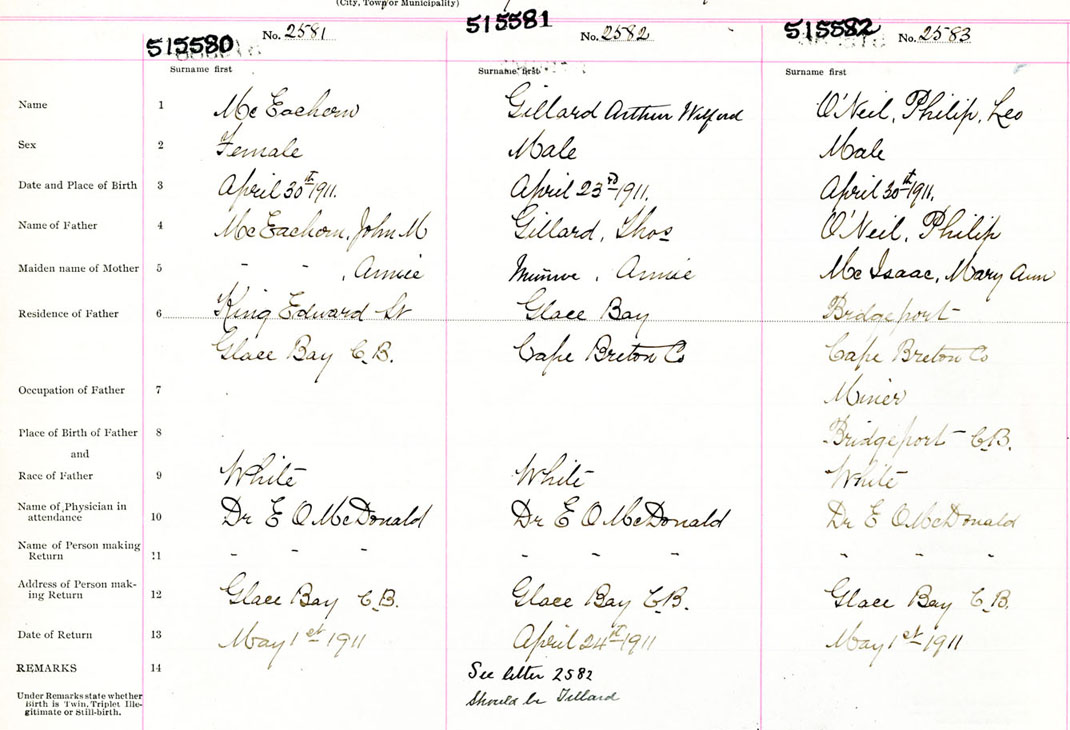 (City, Town or Municipality)
515580 No. 2581 515581 No. 2582 515582 No. 2583
Surname first Surname first Surname first
Name 1 McEachern Gillard Arthur Wilford O'Neil, Philip, Leo
Sex 2 Female Male Male
Date and Place of Birth 3 April 30th 1911. April 23rd 1911. April 30th 1911.
Name of Father 4 McEachern, John M Gillard, Thos O'Neil, Philip
Maiden name of Mother 5 - - , Annie Munroe, Annie McIsaac, Mary Ann
Residence of Father 6 King Edward St Glace Bay Bridgeport
Glace Bay C.B. Cape Breton Co Cape Breton Co
Occupation of Father 7 Miner
Place of Birth of Father 8 Bridgeport C.B.
and
Race of Father 9 White White White
Name of Physician in
attendance 10 Dr E O McDonald Dr E O McDonald Dr E O McDonald
Name of Person making
Return 11 - - - - - - - - -
Address of Person mak-
ing Return 12 Glace Bay C.B. Glace Bay C.B. Glace Bay C.B.
Date of Return 13 May 1st 1911 April 24th 1911 May 1st 1911
REMARKS 14 See letter 2582
Should be Tillard
Under Remarks state whether
Birth is Twin, Triplet, Ille-
gitimate or Still-birth.